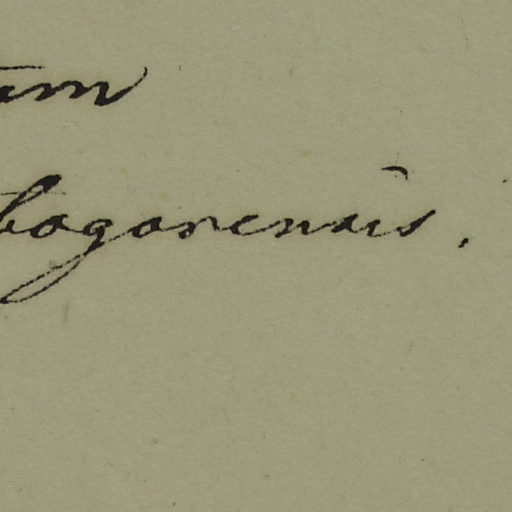 um
bogorensis.